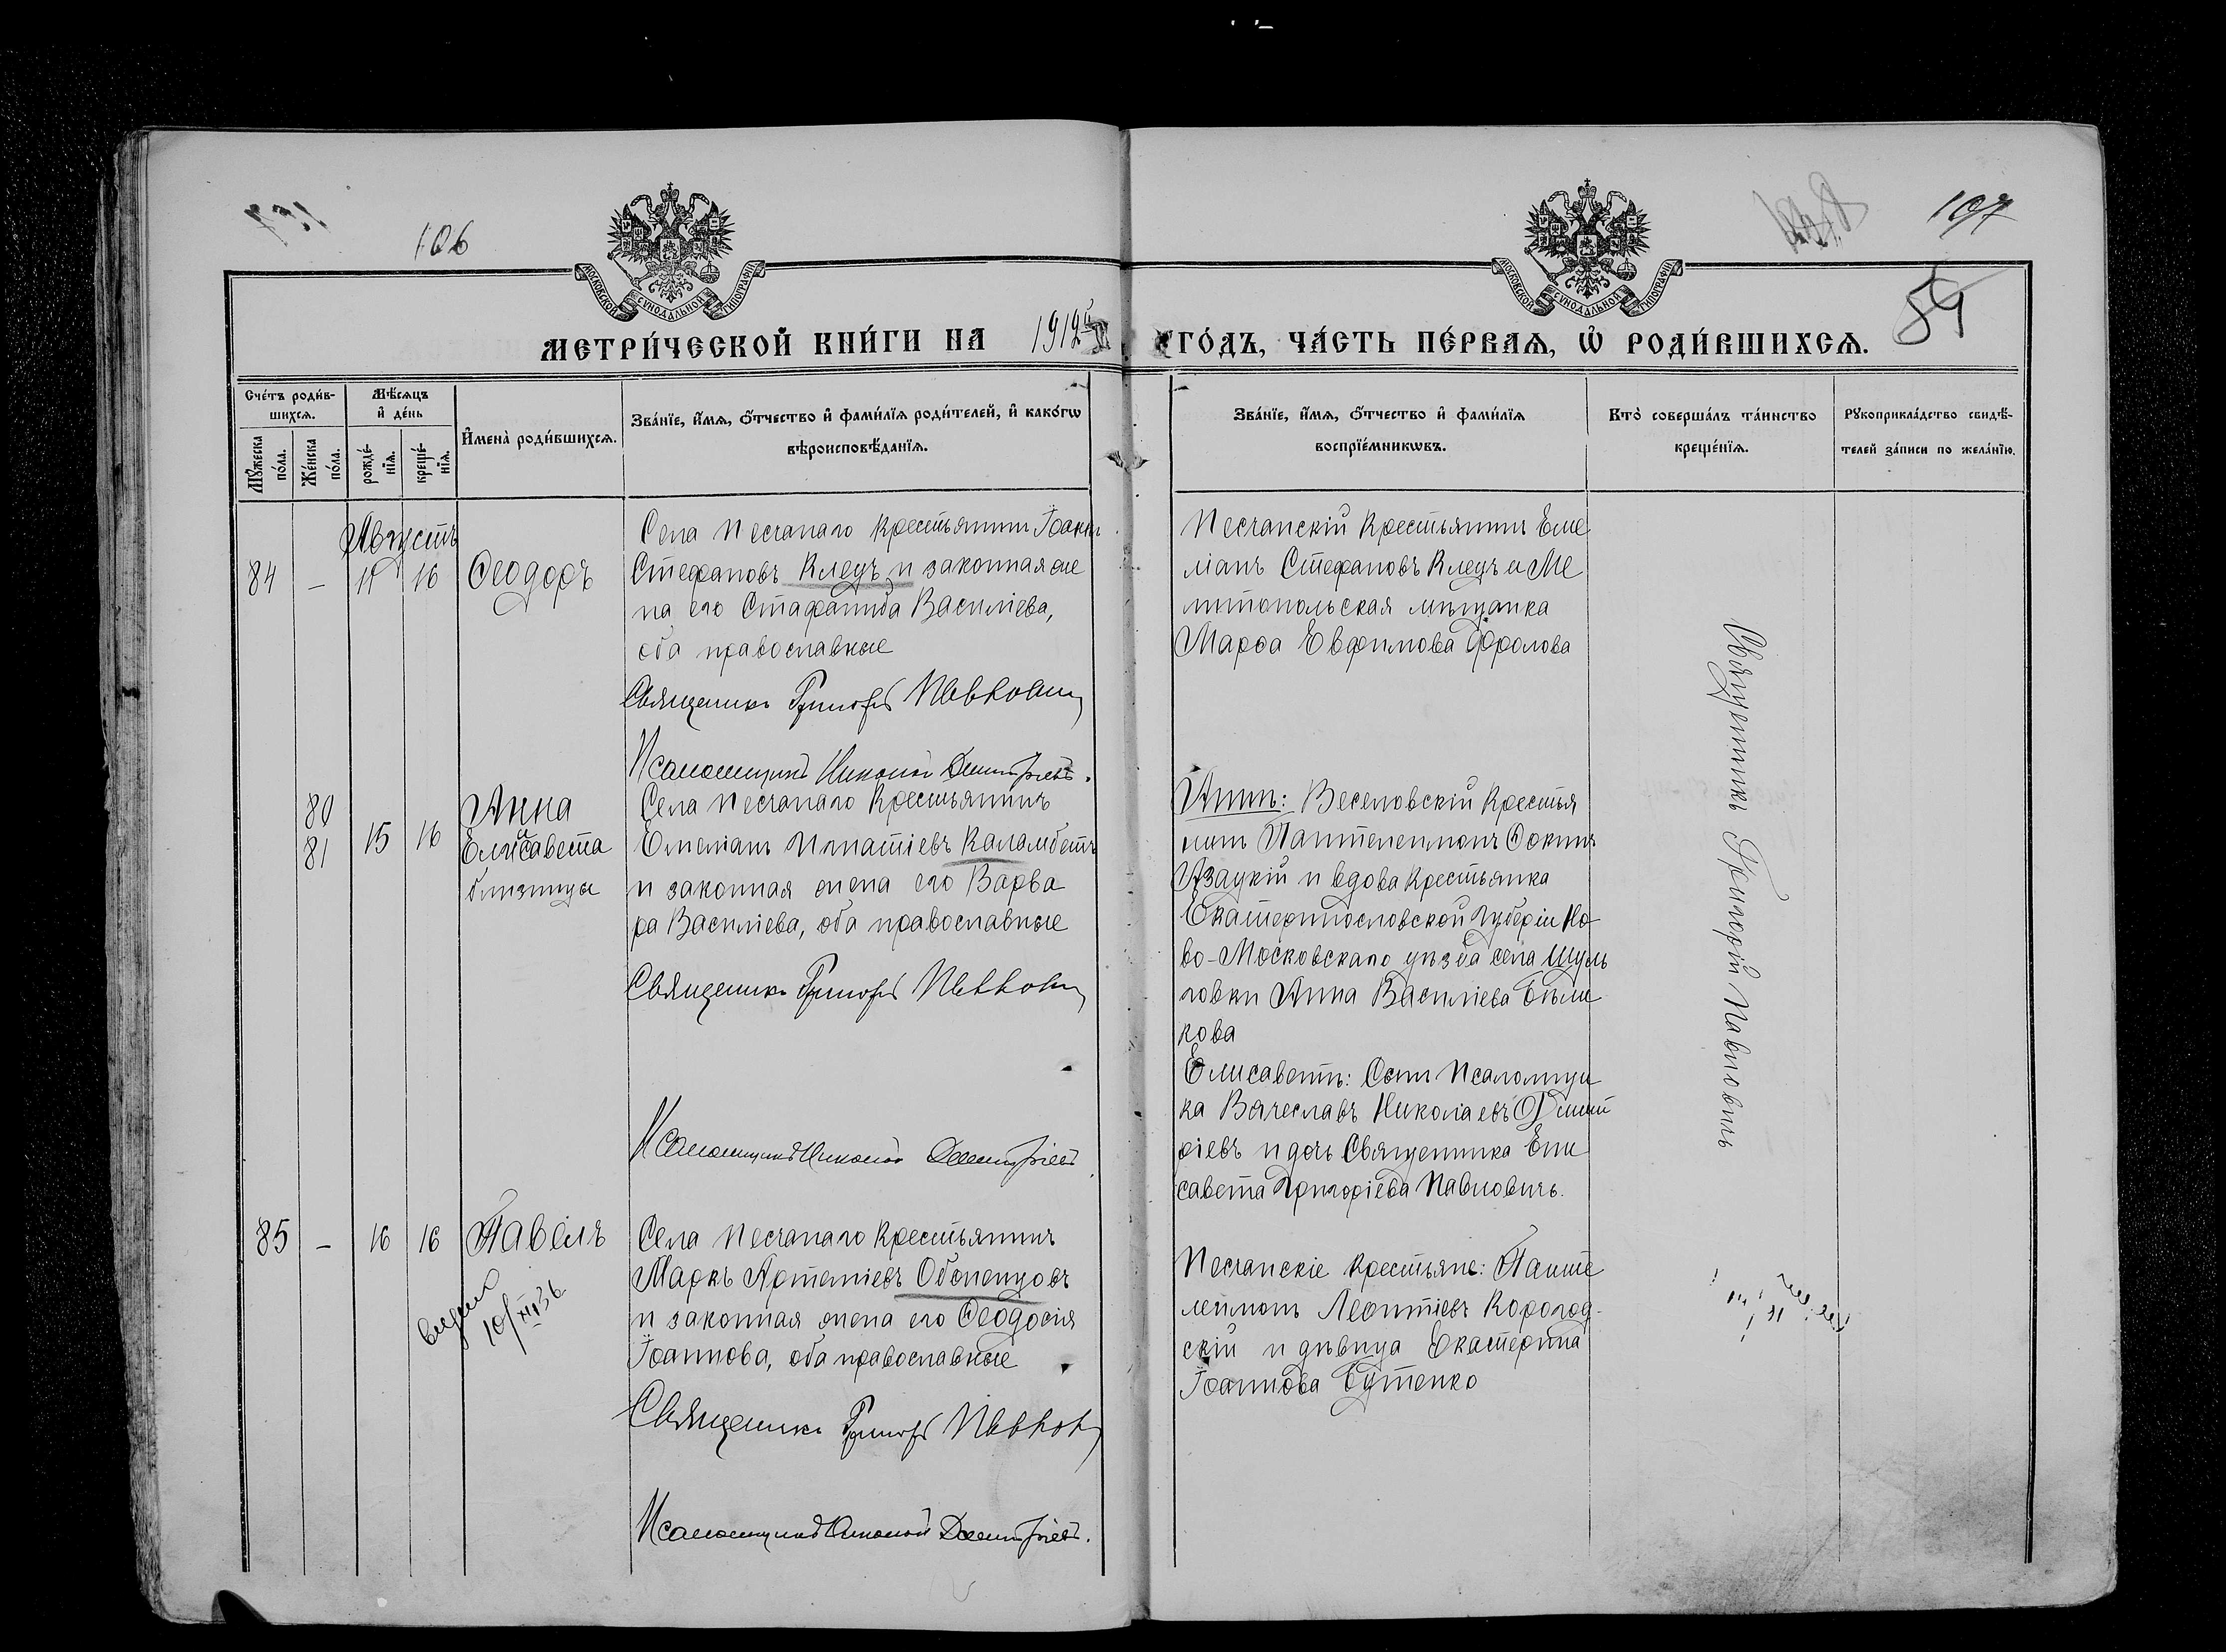 106
107
54
МОСКОВСКОЙ СУНОДАЛЬНОЙ ТИПОГРАФІИ
МОСКОВСКОЙ СУНОДАЛЬНОЙ ТИПОГРАФІИ
МЕТРИ́ЧЕСКОЙ КНИ́ГИ НА 1912й ГО́ДЪ, ЧА́СТЬ ПЕ́РВАЯ, Ѡ РОДИ́ВШИХСЯ.
Сче́тъ роди́в-
шихся.
Мѣ́сяцъ
и де́нь
Мꙋ́жеска
по́ла.
Же́нска
по́ла.
рожде́-
нїя.
креще́-
нїя.
Имена̀ роди́вшихся.
Зва́нїе, и́мя, о́тчество и фами́лїя роди́телей, и како́гѡ
вѣроисповѣ́данїя.
Зва́нїе, и́мя, о́тчество и фами́лїя
воспрїе́мникѡвъ.
Кто̀ соверша́лъ та́инство
креще́нїя.
Рꙋкоприкла́дство свидѣ́-
телей за́писи по жела́нїю.
Августъ
84 – 11 16 Ѳеодоръ
Села Песчанаго крестьянинъ Іоакимъ
Стефановъ Клецъ и законная же
на его Стефанида Василіева,
оба православные
Священникъ Григорій Павловичъ
Псаломщикъ Николай Димитріевъ.
Песчанскій крестьянинъ Еме
ліанъ Стефановъ Клецъ и Ме
литопольская мѣщанка
Марѳа Евфимова Фролова
80
81
15 16
Анна
Елисавета
близнецы
Села Песчанаго крестьянинъ
Емеліанъ Игнатіевъ Каламбетъ
и законная жена его Варва
ра Василіева, оба православные
Священникъ Григорій Павловичъ
Псаломщикъ Николай Димитріевъ
Анны: Веселовскій крестья
нинъ Пантелеимонъ Ѳокинъ
и вдова крестьянка
Екатеринославской губерніи Но
во-Московскаго уѣзда села Шуль
говки Анна Василіева Бѣли
кова
Елисаветы: Сынъ Псаломщи
ка Вячеславъ Николаевъ Димит
ріевъ и дочь Священника Ели
савета Григоріева Павловичъ.
85 – 16 16 Павелъ
выдан
10/XII 36
Села Песчанаго крестьянинъ
Маркъ Артеміевъ Оболенцовъ
и законная жена его Ѳеодосія
Іоаннова, оба православные
Священникъ Григорій Павлович
Псаломщикъ Николай Димитріевъ.
Песчанскіе крестьяне: Панте
леимонъ Леонтіевъ Корогод-
скій и дѣвица Екатерина
Іоаннова Бутенко
Священникъ Григорій Павловичъ